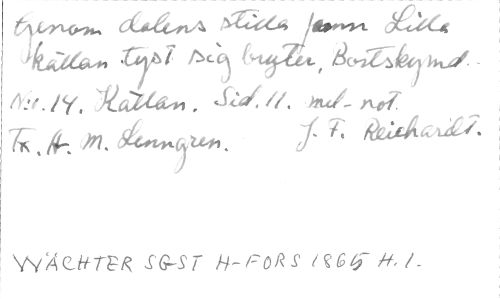 Genom dalens stilla famn Lilla
källan tyst sig bryter, Bortskymd.
Nr. 14. Källan. Sid. 11. mel-not.
Tx. A. M. Lenngren. J. F. Reichardt.
WÄCHTER SGST H-FORS 1865 H. 1.